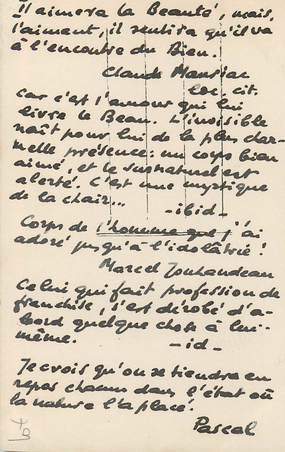 Il aimera la Beauté, mais,
l'aimant, il sentira qu'il va
à l'encontre du Bien.
Claude Mauriac
loc. cit.
Car c'est l'amour qui lui
livre le Beau. L'invisible
naît pour lui de la plus char-
nelle présence: un corps bien
aimé, et le surnaturel est
alerté. C'est une mystique
de la chair...
-ibid-
Corps de l'homme que j'ai
adoré jusqu'à l'idolâtrie!
Marcel Jouhandeau
Celui qui fait profession de
franchise, s'est dérobé d'a-
bord quelque chose à lui-
même. -id-
Je crois qu'on se tiendra en
repos chacun dans l'état où
la nature l'a placé.
Pascal